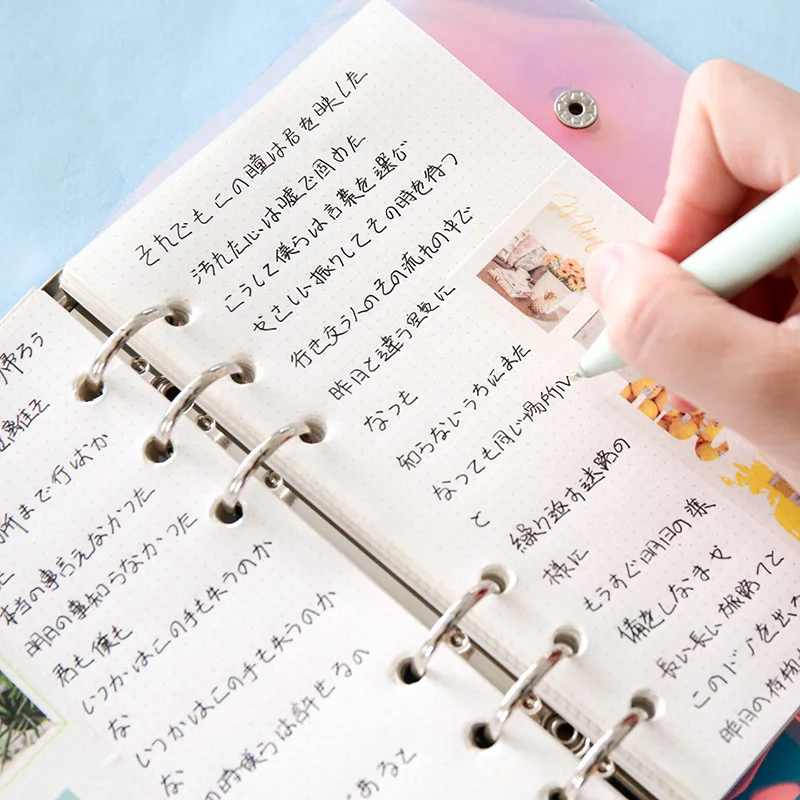 帰ろう
まで行けばか
本当の事言えなかった
明日の事知らなかった
君も僕も
いつかはこの手も失うのか
な
いつかはこの手も失うのか
な
の時僕らは許せるの
あると
それでもこの瞳は君を映した
汚れた心は嘘で固めた
こうして僕らは言葉を選ぶ
やさしい振りしてその時を待つ
行き交う人のその流れの中で
昨日と違う空気に
なつも
知らないうちにまた
なっても同じ場所に
と
繰り返す迷路の
様に
もうすぐ明日の準
備をしなませ
長い長い旅路って
このドアを出る
昨日の荷物
Min